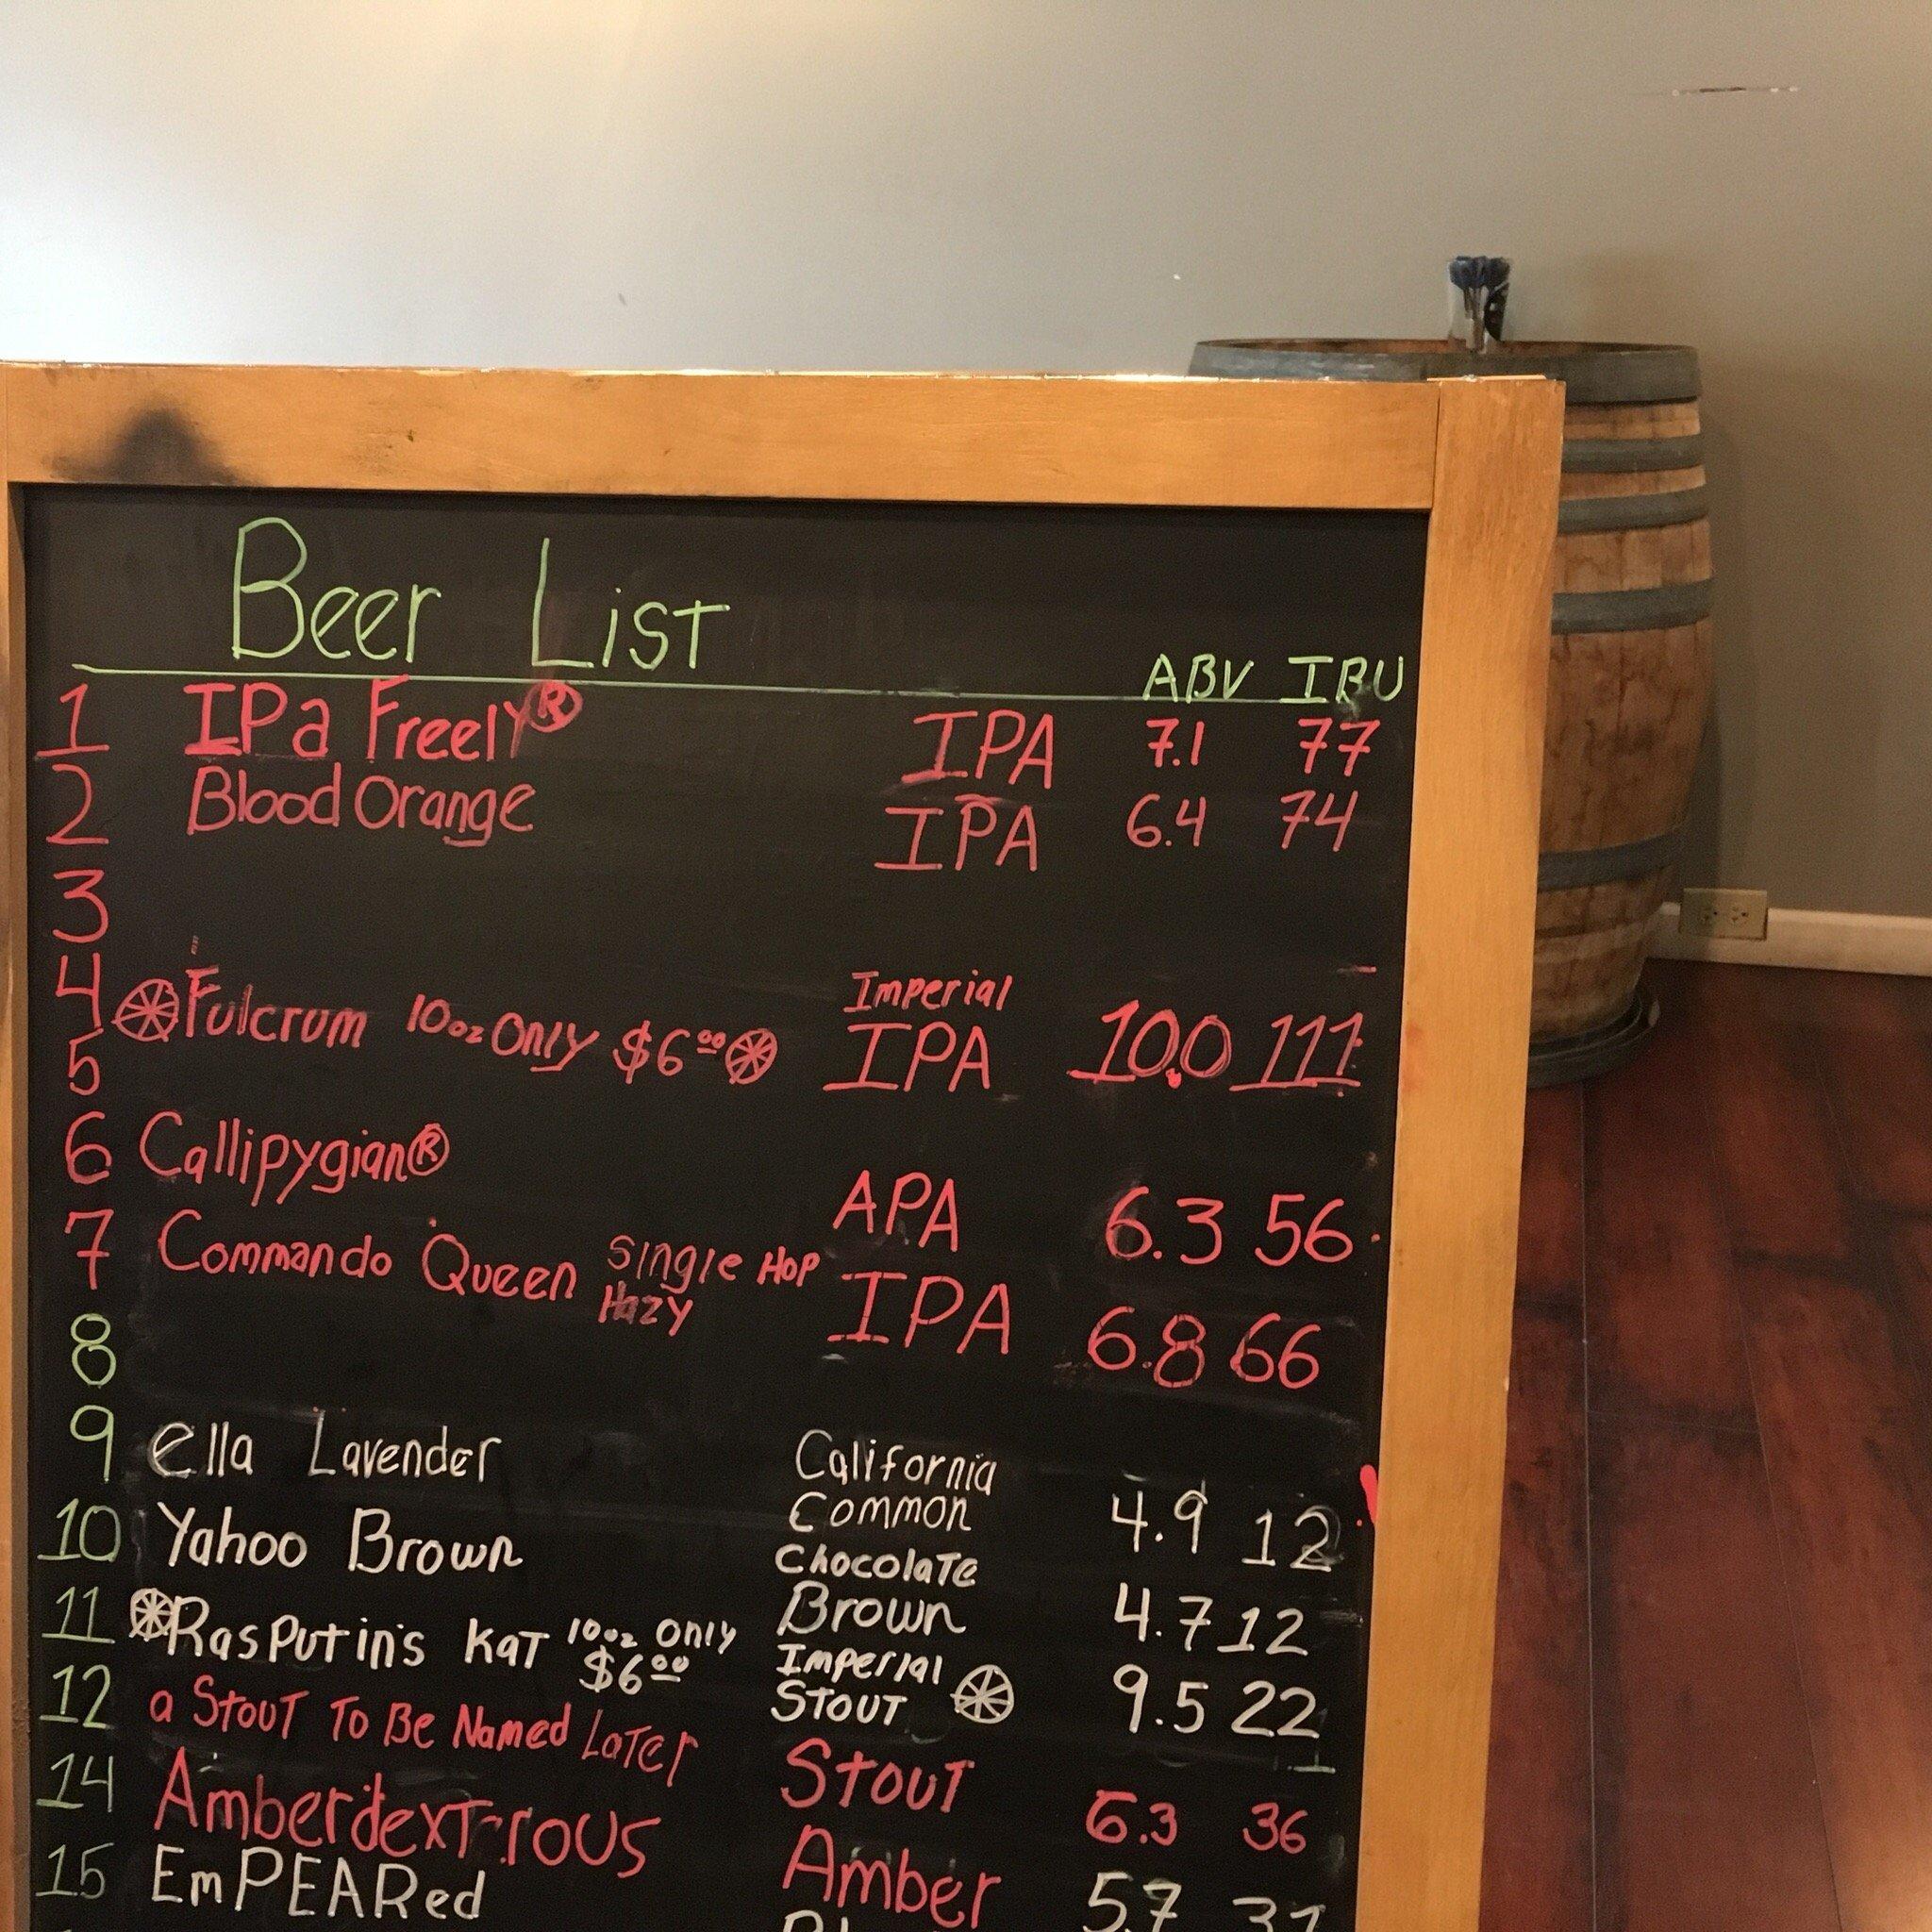 Beer List
ABV IBU
1 IPa Freely® IPA 7.1 77
2 Blood Orange IPA 6.4 74
3
4 Fulcrum 10oz Only $6.00 Imperial IPA 10.0 111
5
6 Callipygian® APA 6.3 56
7 Commando Queen Single Hop Hazy IPA 6.8 66
8
9 Ella Lavender California Common 4.9 12
10 Yahoo Brown Chocolate Brown 4.7 12
11 Rasputin's Kat 10oz Only $6.00 Imperial Stout 9.5 22
12 a Stout To Be Named Later Stout 6.3 36
14 Amberdextrious Amber 5.7 31
15 EmPEARed